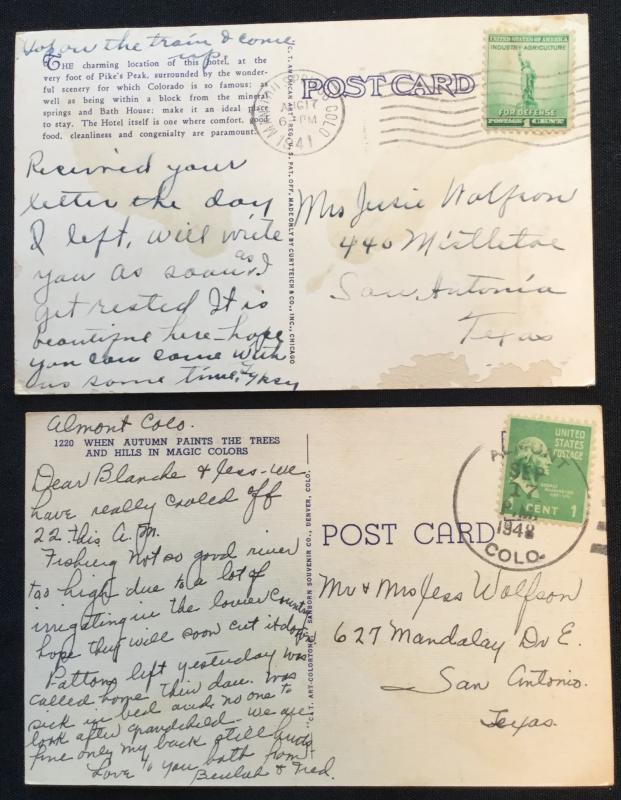 Hop on the train & come
up.
THE charming location of this hotel, at the
very foot of Pike's Peak, surrounded by the wonder-
ful scenery for which Colorado is so famous; as
well as being within a block from the mineral
springs and Bath House; make it an ideal place
to stay. The Hotel itself is one where comfort, good
food, cleanliness and congenialty are paramount.
Received your
letter the day
I left, will write
you as soon as I
get rested It is
beautiful here - hope
you can come with
us some time,
C. T. AMERICAN ART (REG. U. S. PAT. OFF.) MADE ONLY BY CURT TEICH & CO., INC., CHICAGO
POST CARD
COLO
AUG 17
PM
1941
UNITED STATES OF AMERICA
INDUSTRY-AGRICULTURE
FOR DEFENSE
POSTAGE 1 CENT
Mrs Jessie Wolfson
440 Mistletoe
San Antonio
Texas
Almont Colo.
1220 WHEN AUTUMN PAINTS THE TREES
AND HILLS IN MAGIC COLORS
Dear Blanche & Jess - we
have really cooled off
22 this A.M.
Fishing not so good river
too high due to a lot of
irrigating in the lower country
hope they will soon cut it down
Pattons left yesterday was
called home their dau. was
sick in bed and no one to
look after grandchild - we are
fine only my back still hurts
Love to you both from
Beulah & Ned.
"C.T. ART-COLORTONE" SANBORN SOUVENIR CO., DENVER, COLO.
POST CARD
ALMONT
SEP
17
1948
COLO.
UNITED
STATES
POSTAGE
GEORGE
WASHINGTON
1 CENT 1
Mr & Mrs Jess Wolfson
627 Mandalay Dr E.
San Antonio.
Texas.